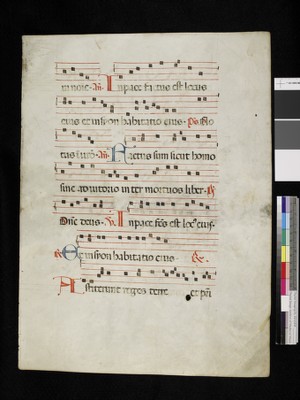 In pace factus est locus
eius et in syon habitatio eius. Ps. No
tus Factus sum sicut homo
sine adiutorio inter mortuos liber.
Dne deus. In pace est eius.
Et in syon habitatio eius.
Astiterunt reges terre et